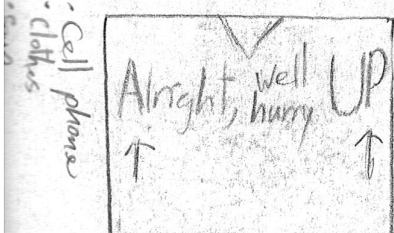 · Cell phone
· clothes
Alright, well
hurry UP